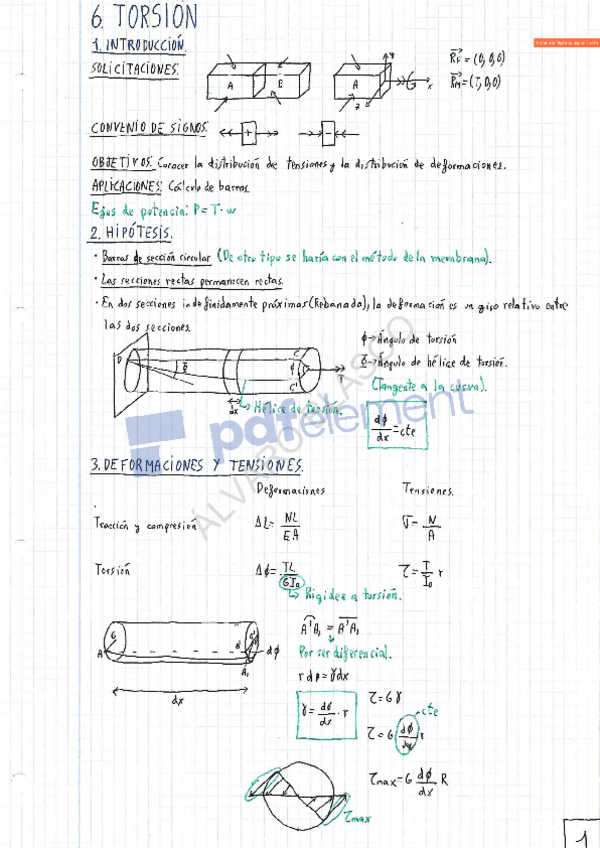 6. TORSION
1. INTRODUCCIÓN.
SOLICITACIONES.
A B
A
y
x
z
RF = (0,0,0)
RM = (T,0,0)
CONVENIO DE SIGNOS.
+ -
OBJETIVOS: Conocer la distribución de tensiones y la distribución de deformaciones.
APLICACIONES: Cálculo de barras.
Ejes de potencia: P = T · w
2. HIPÓTESIS.
· Barras de sección circular (De otro tipo se haría con el método de la membrana).
· Las secciones rectas permanecen rectas.
· En dos secciones indefinidamente próximas (Rebanada), la deformación es un giro relativo entre
las dos secciones.
ϕ → Ángulo de torsión
γ → Ángulo de hélice de torsión.
(Tangente a la curva).
D C ϕ C' T
dx
Hélice de torsión.
dϕ/dx = cte
pdfelement
ÁLVARO BLASCO
3. DEFORMACIONES Y TENSIONES.
Deformaciones Tensiones.
Tracción y compresión ΔL = NL/EA σ = N/A
Torsión Δϕ = TL/GI₀ τ = T/I₀ r
↳ Rigidez a torsión.
A'A₁ = A'A₁
Por ser diferencial.
r dϕ = γdx
A A' A₁ dϕ
dx
γ = dϕ/dx · r
τ = Gγ
cte
τ = G dϕ/dx r
τmax = G dϕ/dx R
τmax
1